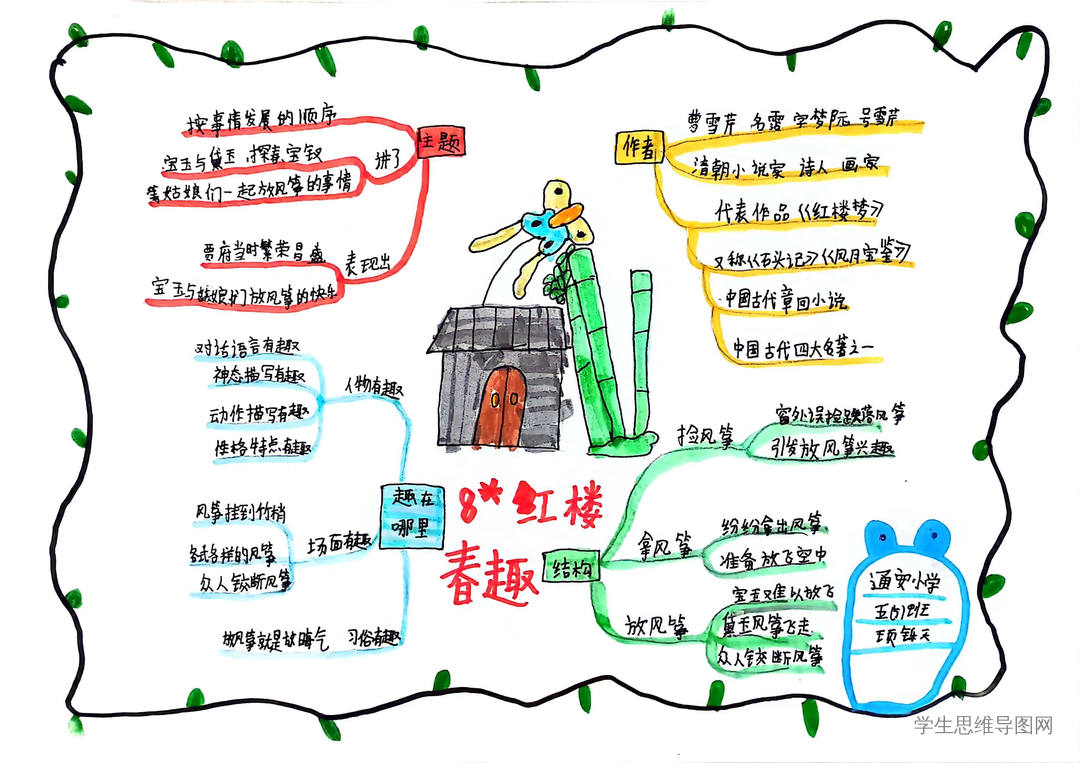 8* 红楼
春趣
主题
讲了
按事情发展的顺序
宝玉与黛玉、探春、宝钗
等姑娘们一起放风筝的事情
表现出
贾府当时繁荣昌盛
宝玉与姑娘们放风筝的快乐
作者
曹雪芹 名霑 字梦阮 号雪芹
清朝小说家 诗人 画家
代表作品《红楼梦》
又称《石头记》《风月宝鉴》
中国古代章回小说
中国古代四大名著之一
趣在
哪里
人物有趣
对话语言有趣
神态描写有趣
动作描写有趣
性格特点有趣
场面有趣
风筝挂到竹梢
各式各样的风筝
众人铰断风筝
习俗有趣
放风筝就是放晦气
结构
捡风筝
窗外误捡跌落风筝
引发放风筝兴趣
拿风筝
纷纷拿出风筝
准备放飞空中
放风筝
宝玉难以放飞
黛玉风筝飞走
众人铰断风筝
通安小学
学生思维导图网